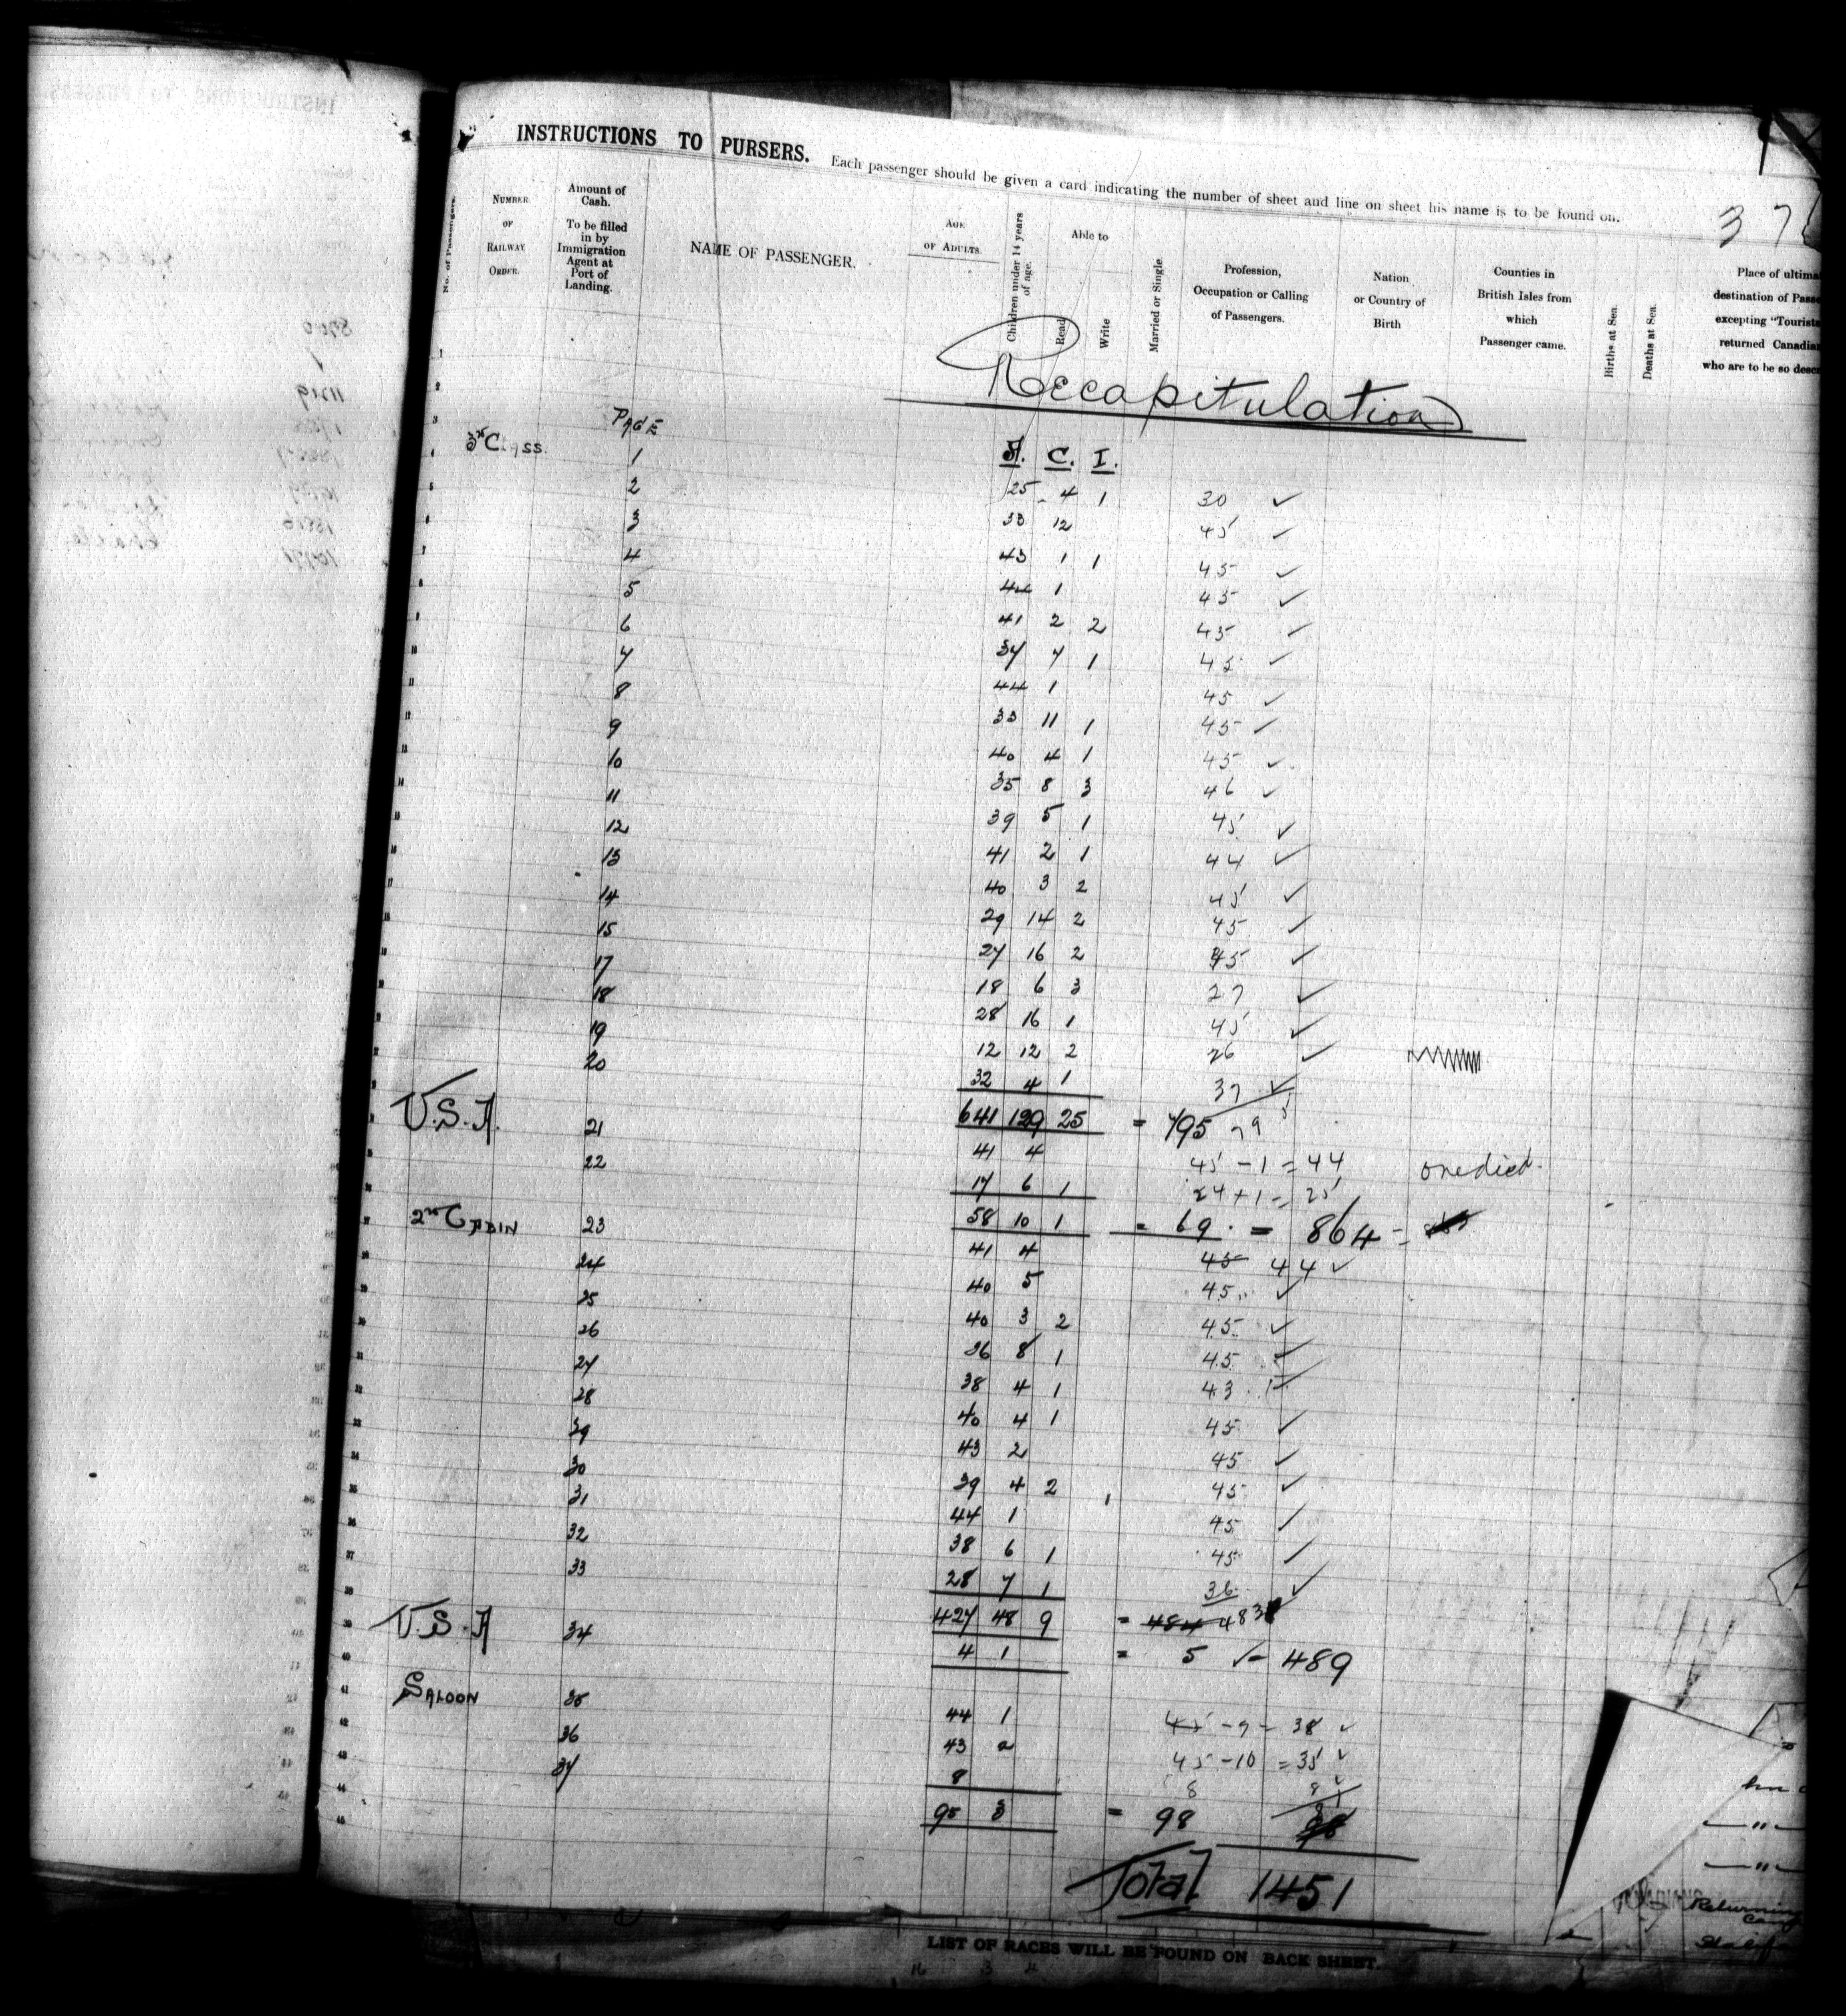 INSTRUCTIONS TO PURSERS. Each passenger should be given a card indicating the number of sheet and line on sheet his name is to be found on.
37
No. of Passengers.
NUMBER OF RAILWAY ORDER.
Amount of Cash. To be filled in by Immigration Agent at Port of Landing.
NAME OF PASSENGER.
AGE OF ADULTS.
Children under 14 years of age.
Able to
Read
Write
Married or Single
Profession, Occupation or Calling of Passengers.
Nation or Country of Birth
Counties in British Isles from which Passenger came.
Births at Sea.
Deaths at Sea.
Place of ultima
destination of Passe
excepting "Tourists
returned Canadian
who are to be so descr
Recapitulation
PAGE
3rd Class
A. C. I.
1 25 4 1 30 ✓
2 33 12 45 ✓
3 43 1 1 45 ✓
4 44 1 45 ✓
5 41 2 2 45 ✓
6 37 7 1 45 ✓
7 44 1 45 ✓
8 33 11 1 45 ✓
9 40 4 1 45 ✓
10 35 8 3 46 ✓
11 39 5 1 45 ✓
12 41 2 1 44 ✓
13 40 3 2 45 ✓
14 29 14 2 45 ✓
15 27 16 2 45 ✓
17 18 6 3 27 ✓
18 28 16 1 45 ✓
19 12 12 2 26 ✓
20 32 4 1 37 ✓
641 129 25 = 795 795
U.S.A.
21 41 4 45 - 1 = 44 one died.
22 17 6 1 24 + 1 = 25
58 10 1 = 69. = 864 =
2nd CABIN
23 41 4 45 44 ✓
24 40 5 45 ✓
25 40 3 2 45 ✓
26 36 8 1 45 ✓
27 38 4 1 43 ✓
28 40 4 1 45 ✓
29 43 2 45 ✓
30 39 4 2 45 ✓
31 44 1 45 ✓
32 38 6 1 45 ✓
33 28 7 1 36 ✓
427 48 9 = 484 483
U.S.A
34 4 1 = 5 ✓ = 489
SALOON
35 44 1 45 - 7 = 38 ✓
36 43 2 45 - 10 = 35 ✓
37 8 8 8 ✓
95 3 = 98 81
Total 1451
Returning
LIST OF RACES WILL BE FOUND ON BACK SHEET.
16 3 4